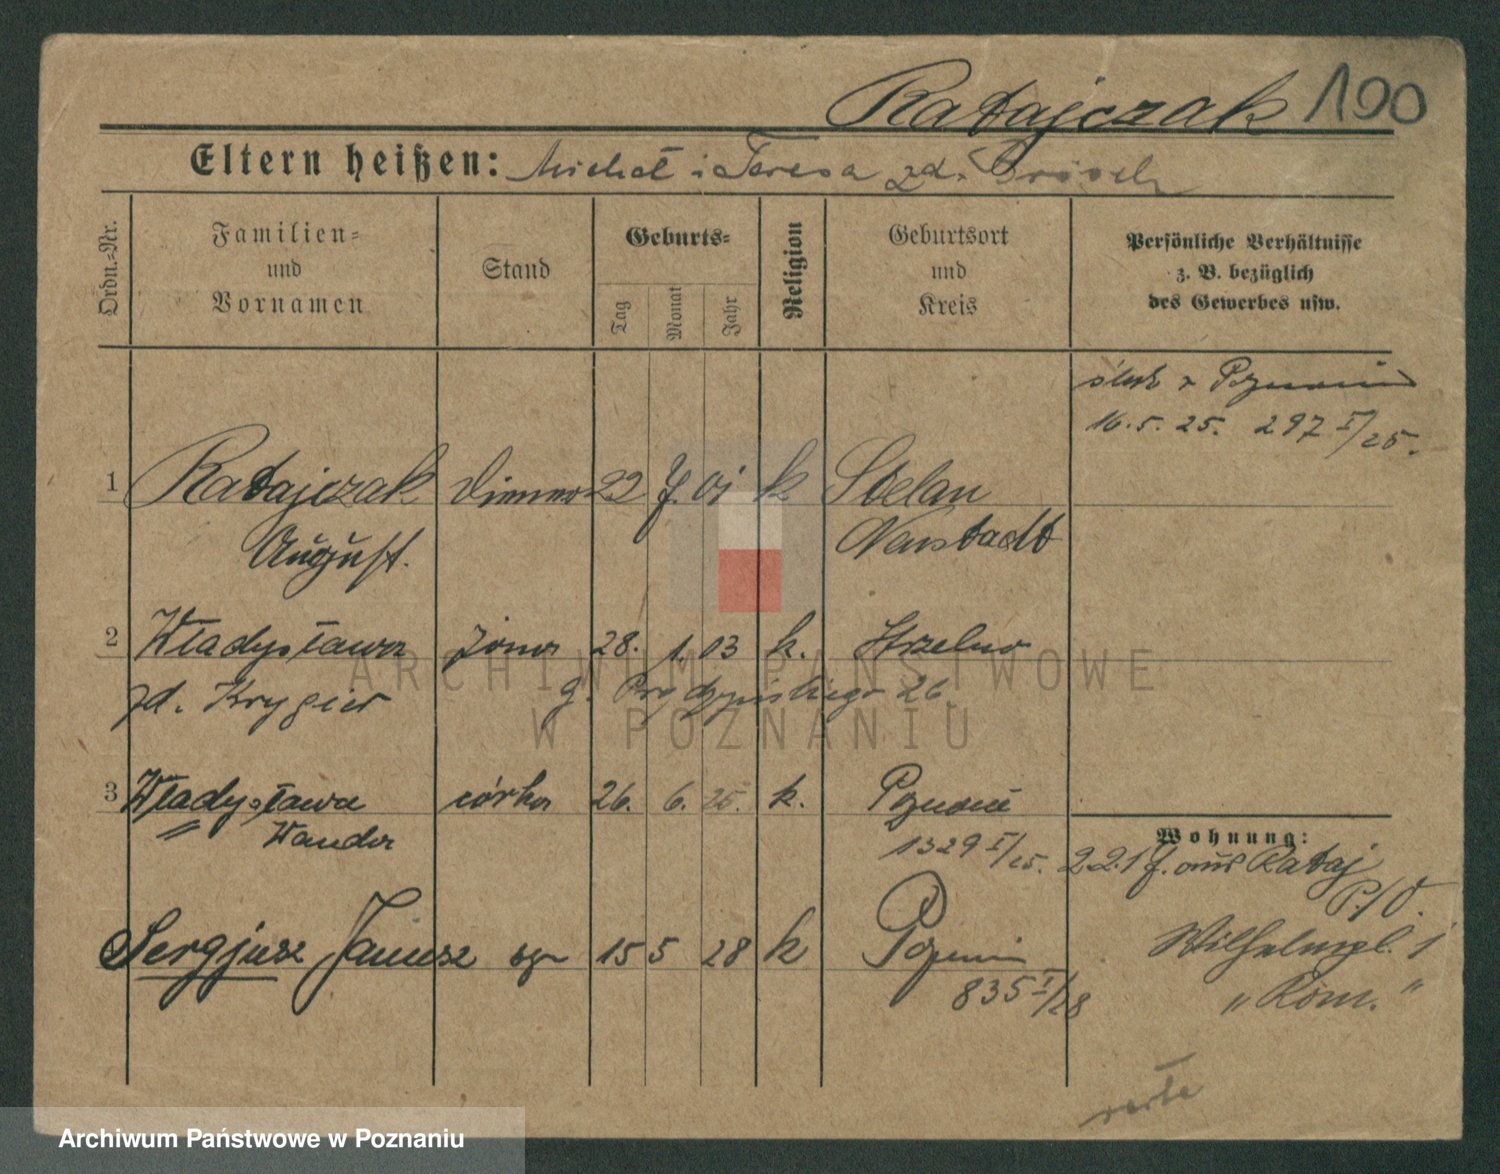 Ratajczak 100
Eltern heißen: Michał i Teresa zd.
Ordn.-Nr.
Familien-
und
Vornamen
Stand
Geburts-
Tag
Monat
Jahr
Religion
Geburtsort
und
Kreis
Persönliche Verhältnisse
z. B. bezüglich
des Gewerbes usw.
ślub w Poznaniu
16.5.25. 297 I/25.
1 Ratajczak Diener 22 7. 01 k
August. Neustadt
2 Władysława żona 28. 1. 03 k. Strzelno
zd. Krygier 26.
3 Władysława córka 26. 6. 25. k. Poznań
Wanda 1329 I/25.
Wohnung:
22.1 f. aus Rataj
P./O.
Sergjusz Janusz syn 15 5 28 k Poznań
835 I/28
Wilhelmpl. 1
„Rom.“
verte
ARCHIWUM PAŃSTWOWE
W POZNANIU
Archiwum Państwowe w Poznaniu